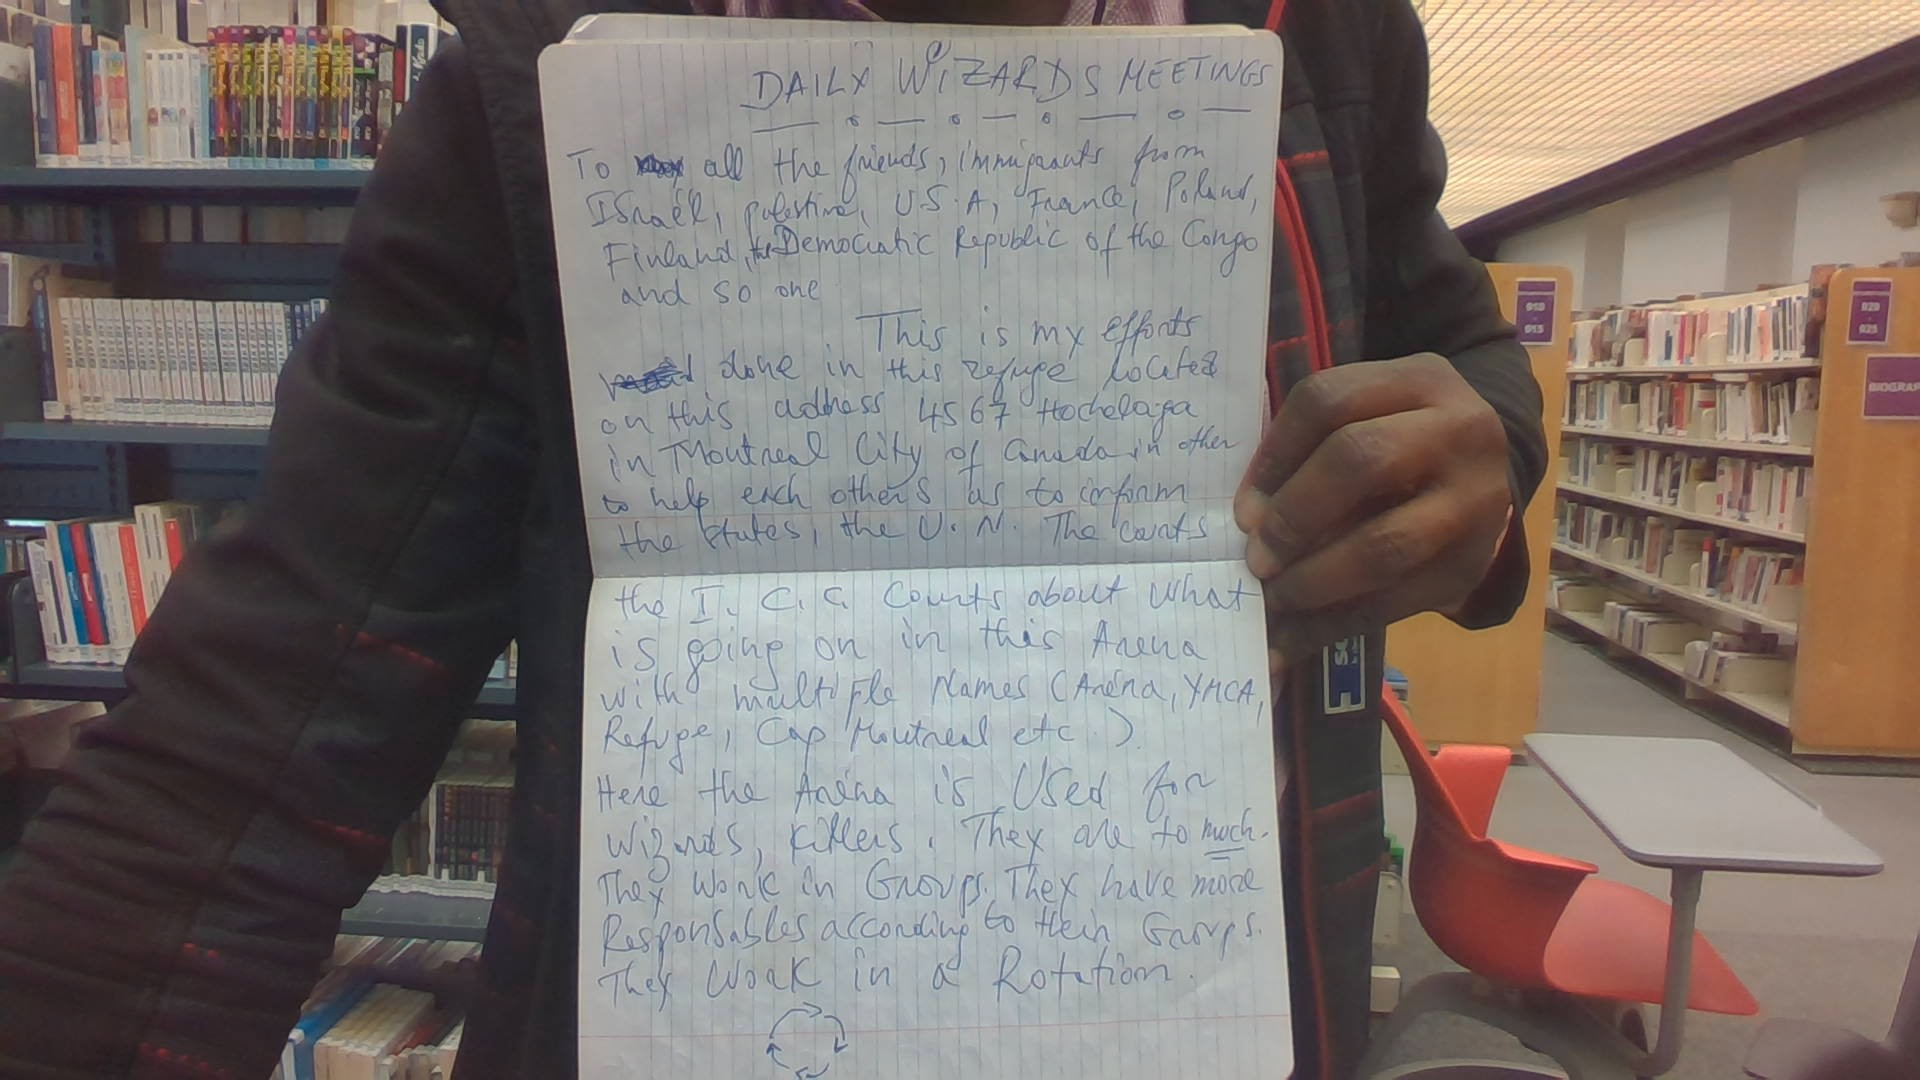 DAILY WIZARDS MEETINGS
To all the friends, immigrants from
Israël, palestine, U.S.A, France, Poland,
Finland, the Democratic Republic of the Congo
and so one
This is my efforts
done in this refuge located
on this address 4567 Hochelaga
in Montreal City of Canada in other
to help each others as to inform
the states, the U.N. The courts
the I.C.C. Courts about what
is going on in this Arena
with multiple Names (Aréna, YMCA,
Refuge, Cap Montreal etc.)
Here the Aréna is Used for
Wizards, killers. They are to much.
They work in Groups. They have more
Responsables according to their Groups.
They Work in a Rotation.
010
015
020
025
BIOGRAP